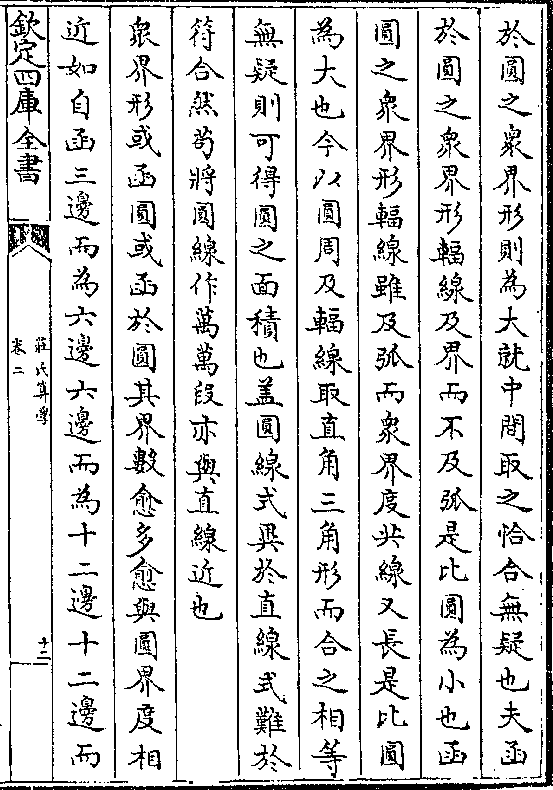 於圓之衆界形則為大就中間取之恰合無疑也夫函
於圓之衆界形輻線及界而不及弧是比圓為小也函
圓之衆界形輻線雖及弧而衆界度此線又長是比圓
為大也今以圓周及輻線取直角三角形而合之相等
無疑則可得圓之面積也盖圓線式異於直線式難於
符合然茍將圓線作萬萬段亦與直線近也
衆界形或函圓或函於圓其界數愈多愈與圓界度相
近如自函三邊而為六邊六邊而為十二邊十二邊而
欽定四庫全書
莊氏算學
卷二
十二